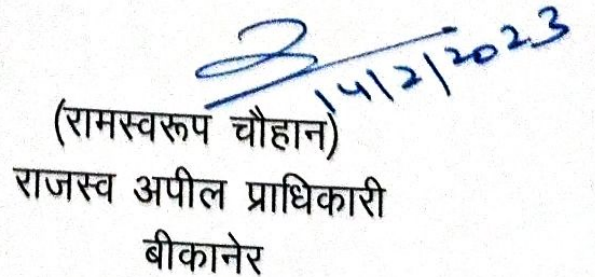 14/2/2023
(रामस्वरूप चौहान)
राजस्व अपील प्राधिकारी
बीकानेर